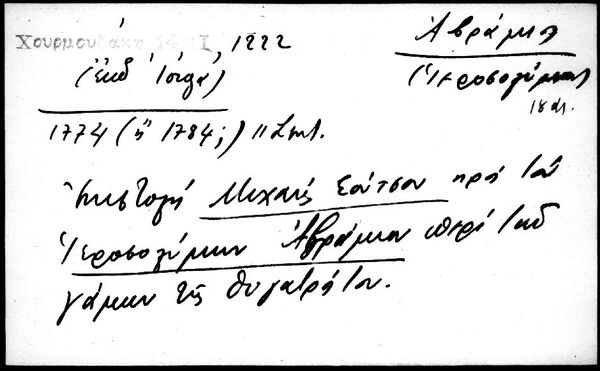 Χουρμουζάκη 14 II, 1222
Ἀβράμιος
(ἔκδ Ἰόργα)
(Ἱεροσολύμων)
18 αἰ.
1774 (ἢ 1784;) 11 Σεπτ.
Ἐπιστολή Μιχαήλ Σούτσου πρός τόν
Ἱεροσολύμων Ἀβράμιον περί τοῦ
γάμου τῆς θυγατρός του.